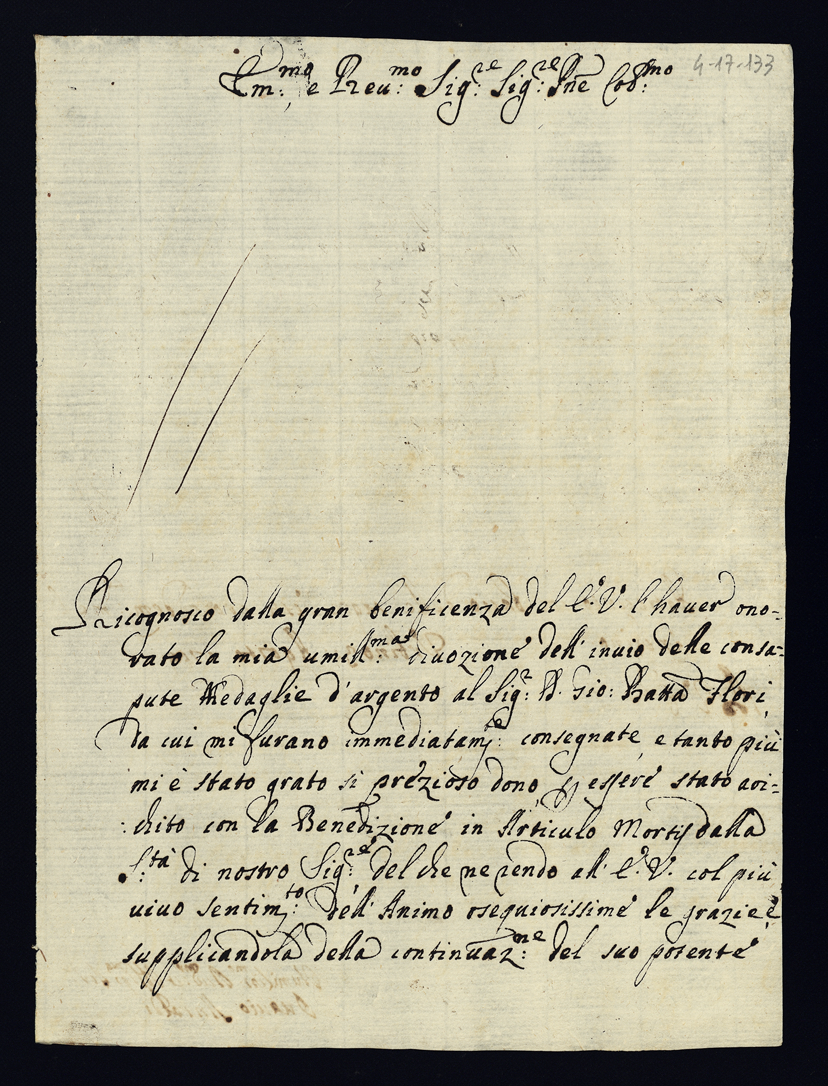 4-17-133
Em:mo e Reu:mo Sig:re Sig:re Pne Col:mo
Ricognosco dalla gran benificenza del E. V. l'hauer ono-
rato la mia umill:ma diuozione dell'inuio delle consa-
pute Medaglie d'argento al Sig:r D. Gio: Batta Flori,
da cui mi furano immediatam:te consegnate, e tanto più
mi è stato grato si prezioso dono p essere stato ari-
:chito con la Benedizione in Articulo Mortis dalla
S:tà di nostro Sig:re del che ne rendo all'E. V. col più
uiuo sentim:to dell'Animo osequiosissime le grazie e
supplicandola della continuaz:ne del suo potente